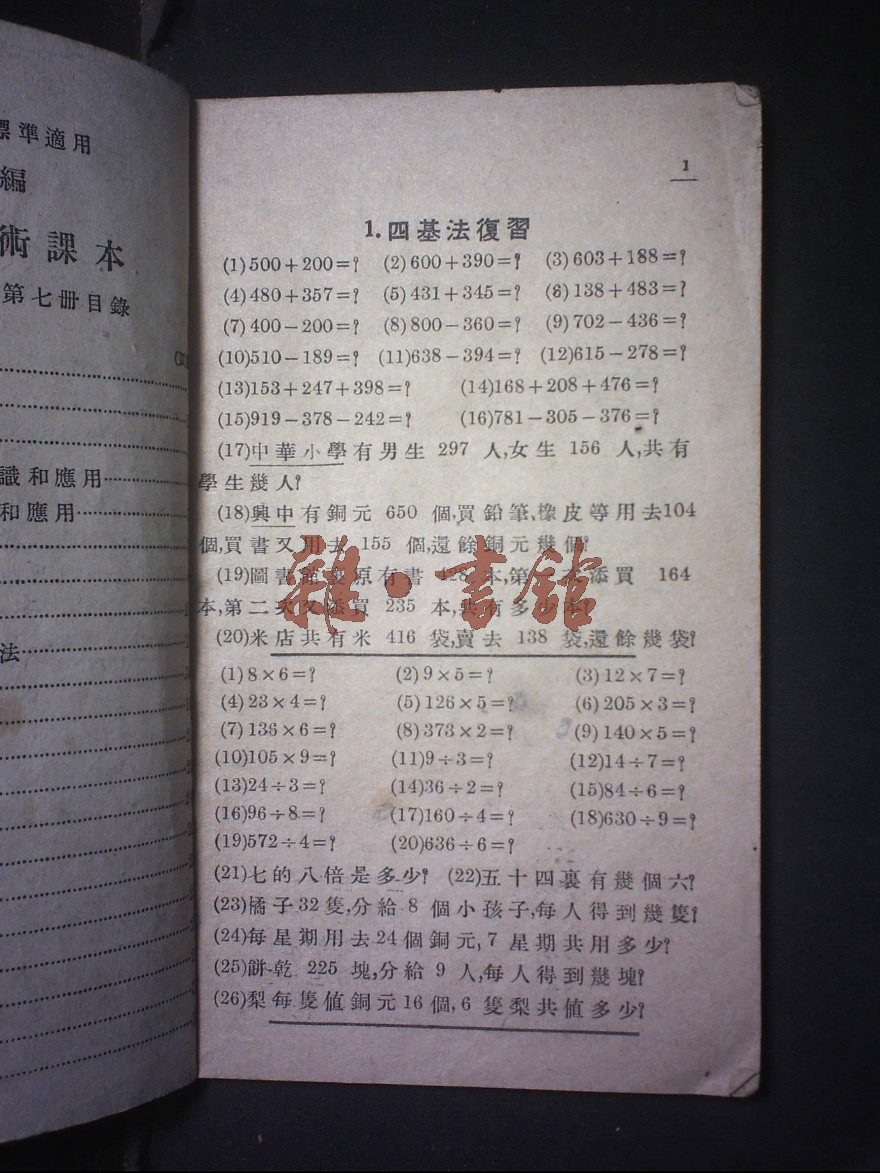 標準適用
編
術課本
第七冊目錄
識和應用
和應用
法
1
1.四基法復習
(1)500+200=? (2)600+390=? (3)603+188=?
(4)480+357=? (5)431+345=? (6)138+483=?
(7)400-200=? (8)800-360=? (9)702-436=?
(10)510-189=? (11)638-394=? (12)615-278=?
(13)153+247+398=? (14)168+208+476=?
(15)919-378-242=? (16)781-305-376=?
(17)中華小學有男生 297 人,女生 156 人,共有
學生幾人?
(18)興中有銅元 650 個,買鉛筆,橡皮等用去104
個,買書又用去 155 個,還餘銅元幾個?
(19)圖書館裏原有書 428 本,第一次添買 164
本,第二次又添買 235 本,共有多少本?
(20)米店共有米 416 袋,賣去 138 袋,還餘幾袋?
(1)8×6=? (2)9×5=? (3)12×7=?
(4)23×4=? (5)126×5=? (6)205×3=?
(7)136×6=? (8)373×2=? (9)140×5=?
(10)105×9=? (11)9÷3=? (12)14÷7=?
(13)24÷3=? (14)36÷2=? (15)84÷6=?
(16)96÷8=? (17)160÷4=? (18)630÷9=?
(19)572÷4=? (20)636÷6=?
(21)七的八倍是多少? (22)五十四裏有幾個六?
(23)橘子32隻,分給 8 個小孩子,每人得到幾隻?
(24)每星期用去24個銅元,7 星期共用多少?
(25)餅乾 225 塊,分給 9 人,每人得到幾塊?
(26)梨每隻值銅元16個,6 隻梨共值多少?
雜·書館